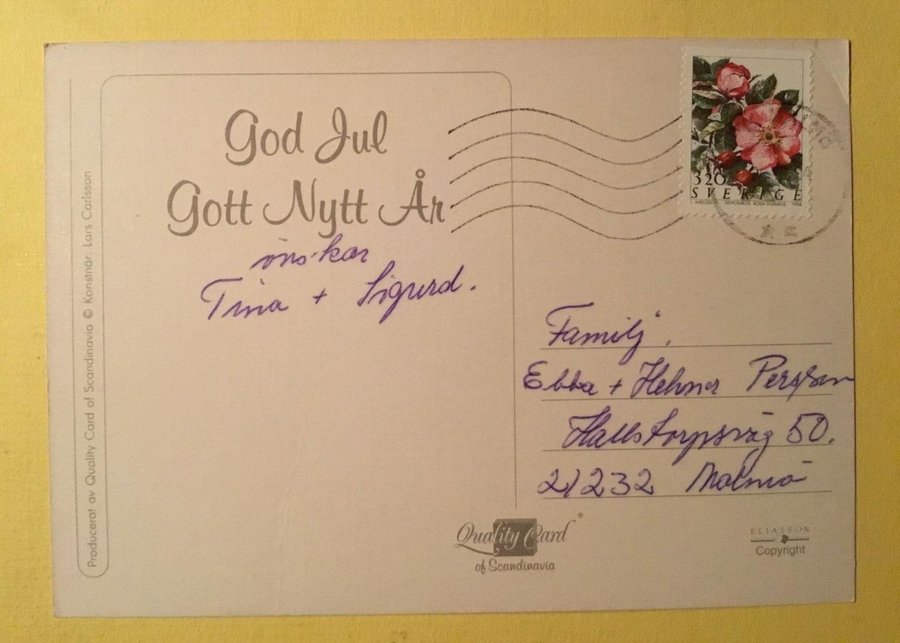 God Jul
Gott Nytt År
önskar
Tina + Sigurd.
Producerat av Quality Card of Scandinavia © Konstnär: Lars Carlsson
320
SVERIGE
Familj.
Ebba + Helmer Persson
Hallstorpsväg 50.
21232 Malmö
Quality Card®
of Scandinavia
ELIASSON
Copyright